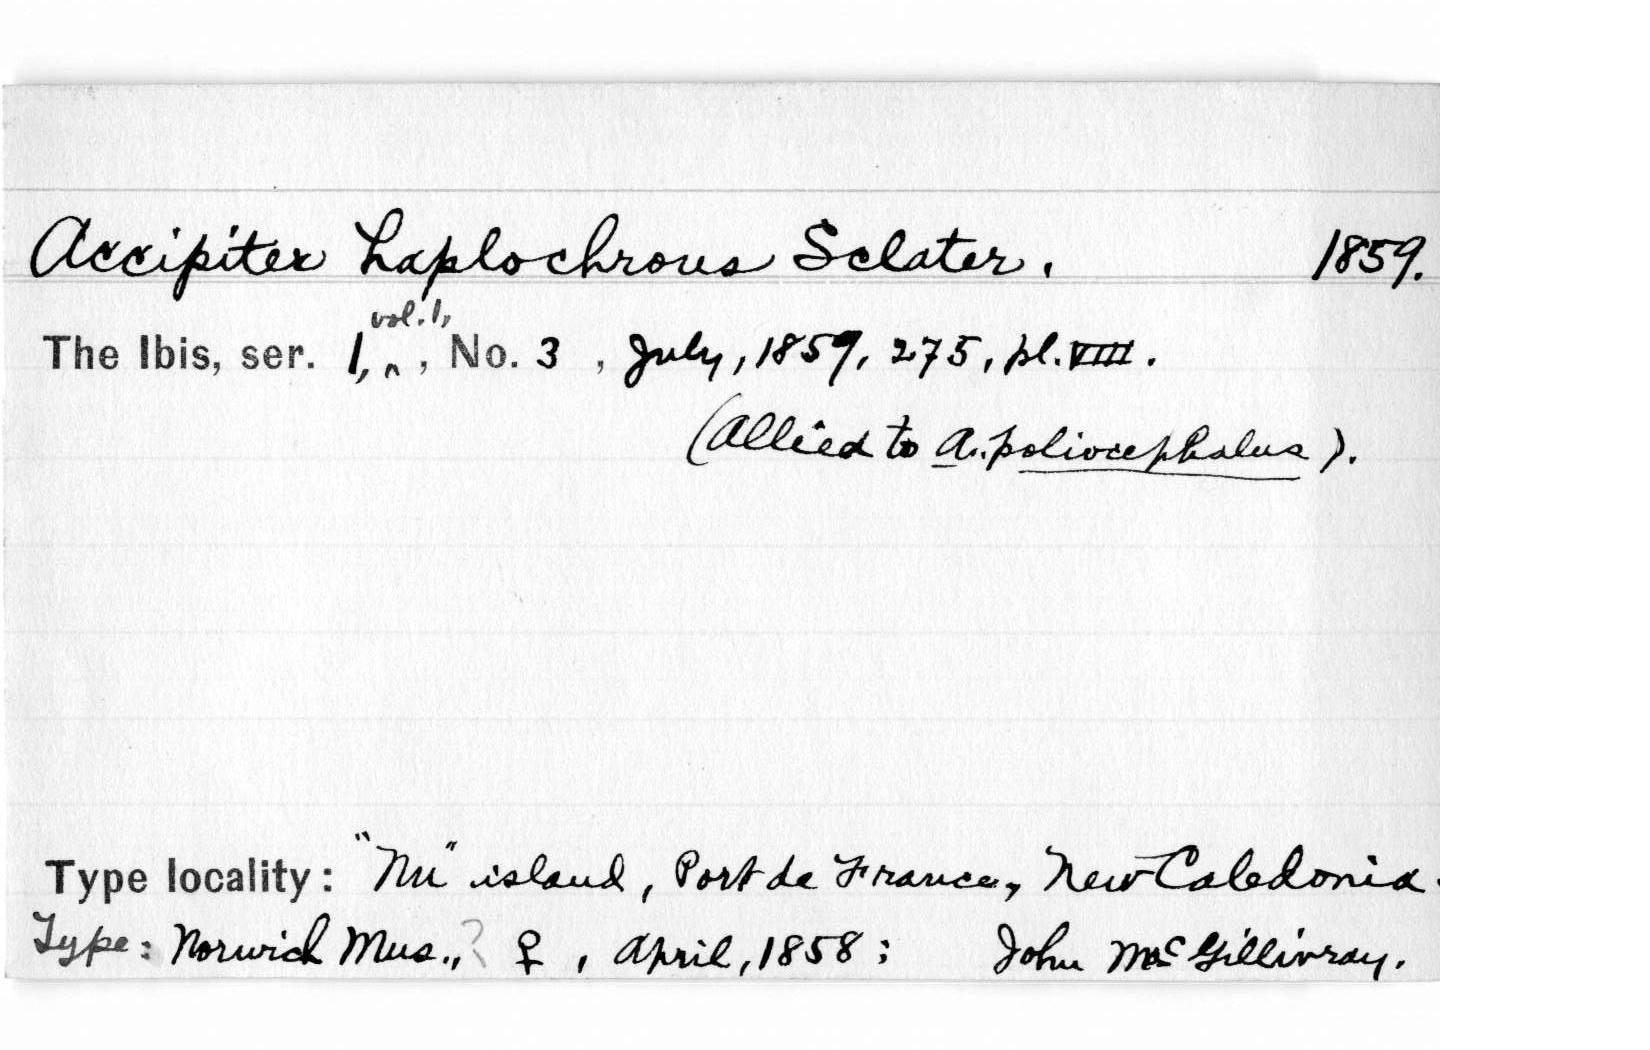 Accipiter haplochrous Sclater. 1859.
The Ibis, ser. 1, vol. 1, , No. 3 , July, 1859, 275, pl. VIII.
(Allied to A. poliocephalus).
Type locality: "Nu" island, Port de France, New Caledonia.
Type: Norwich Mus., ? ♀ , April, 1858; John McGillivray.